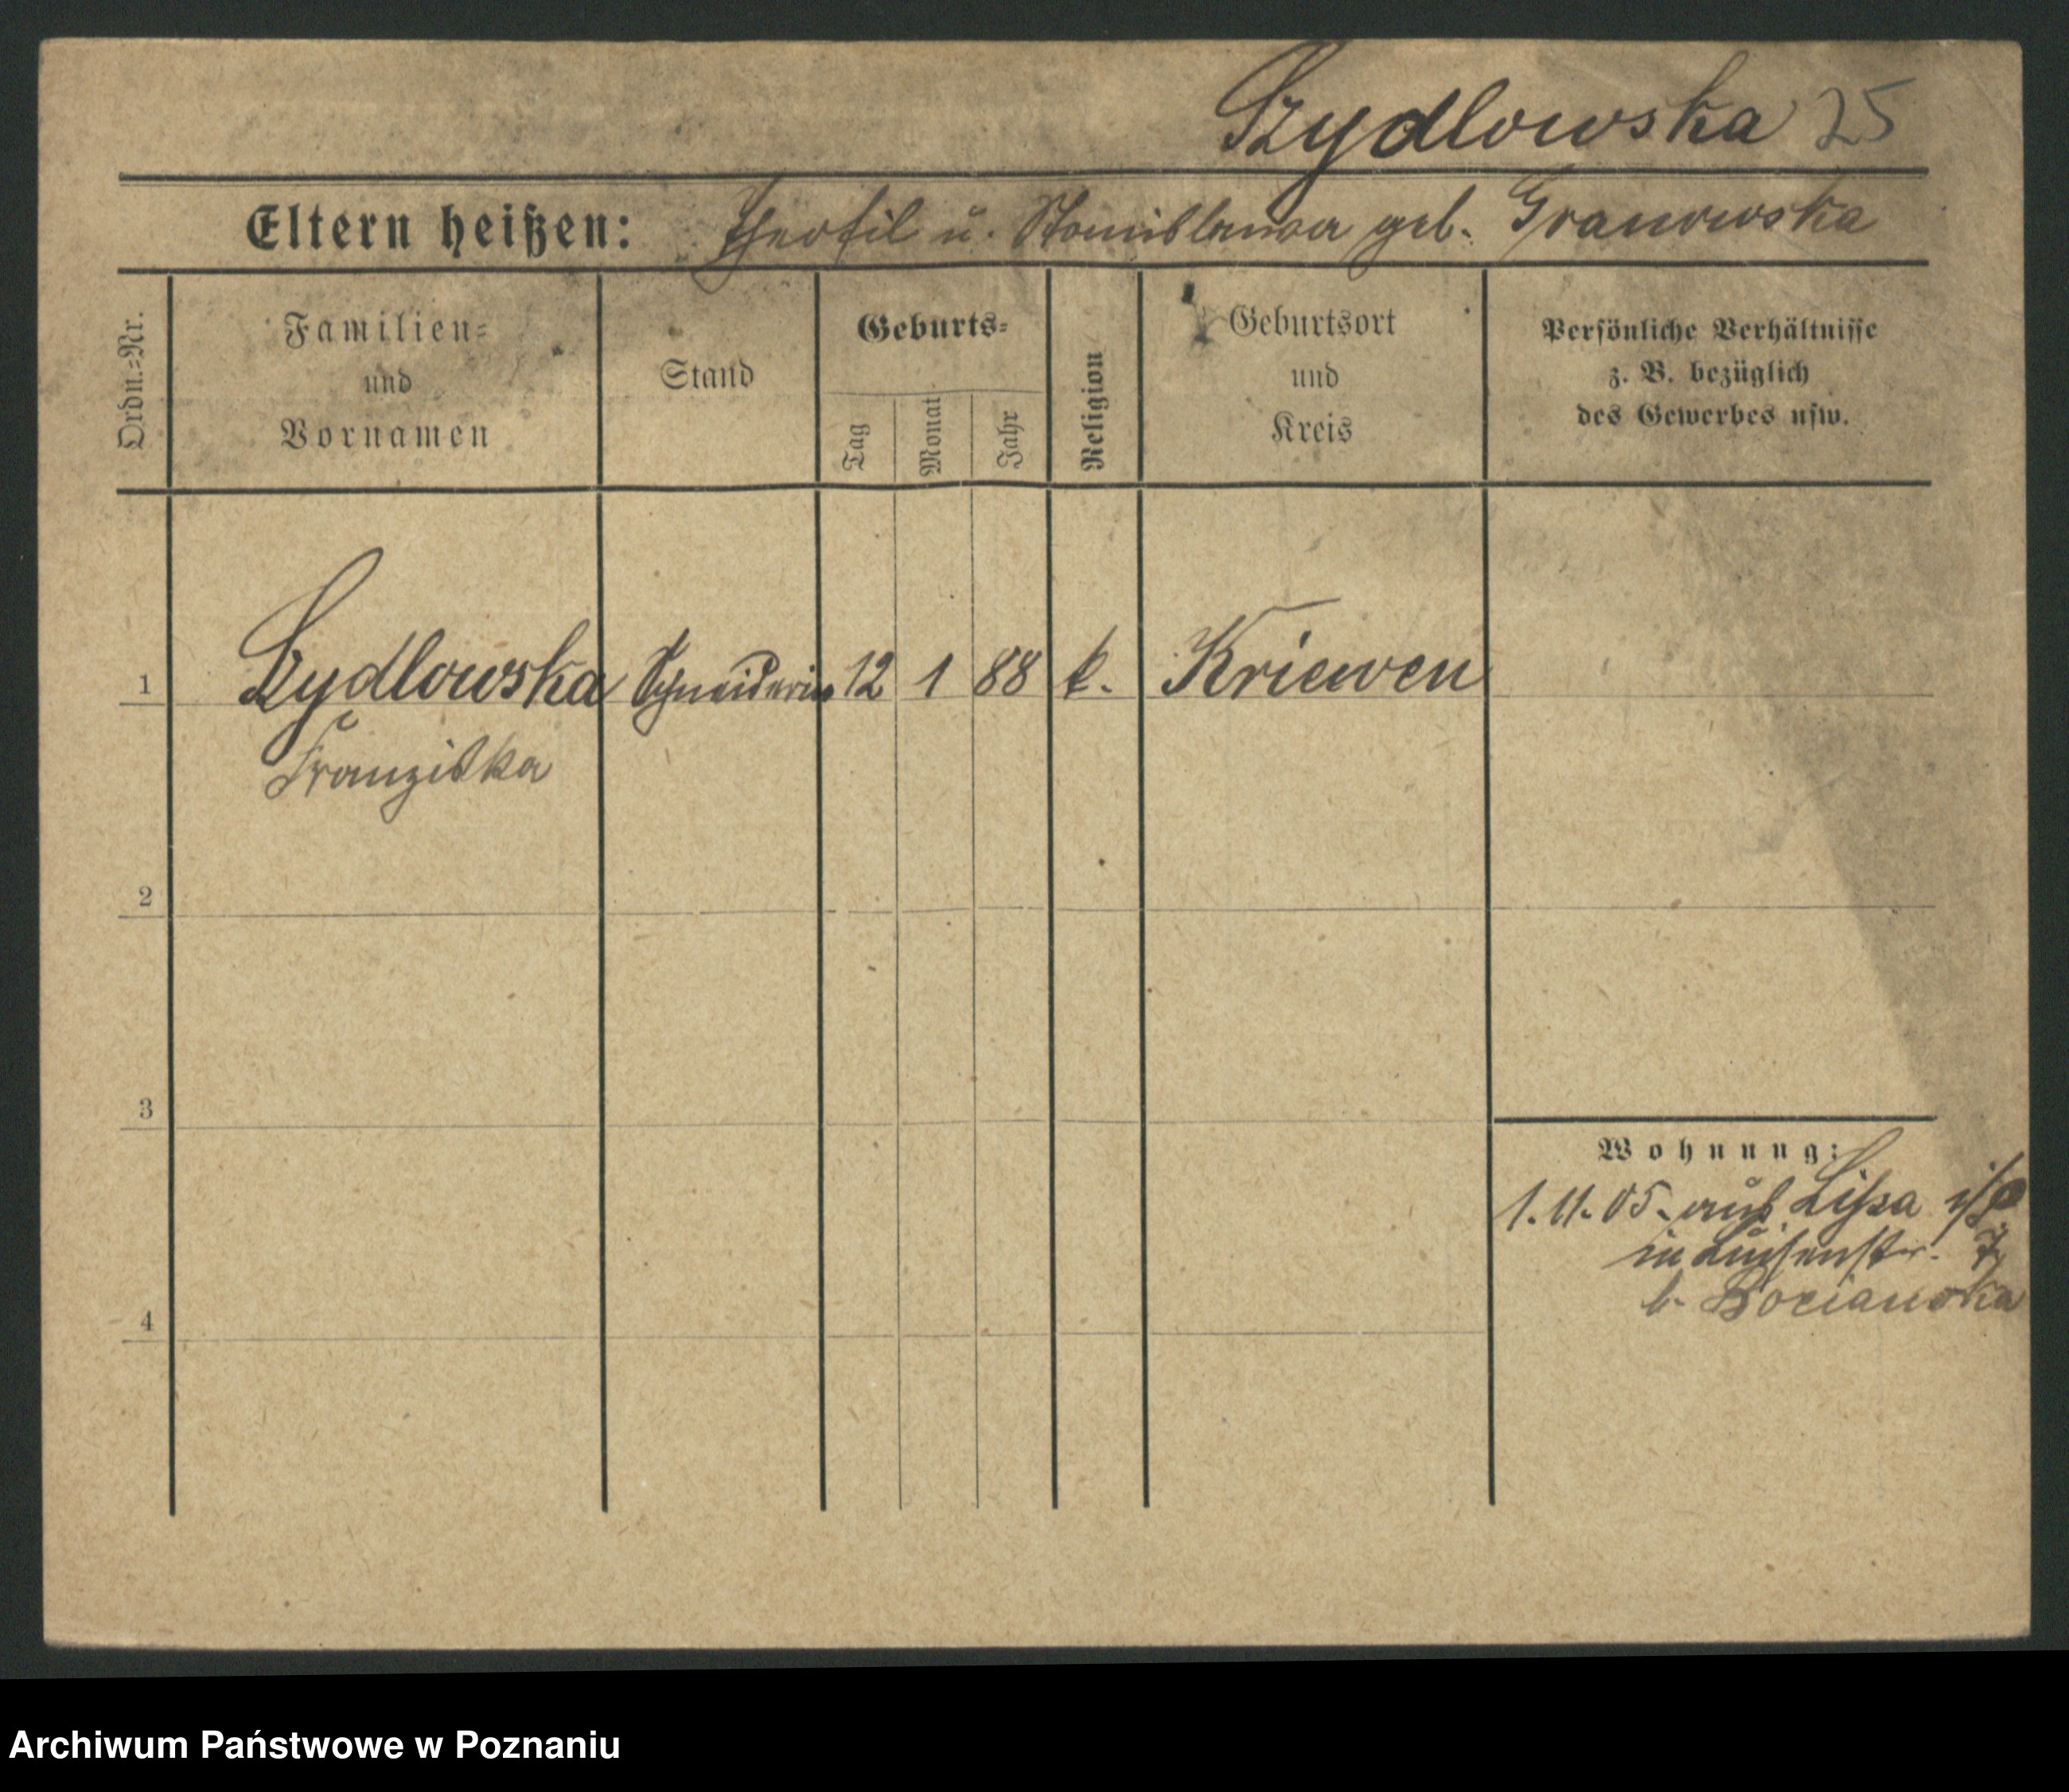 Szydlowska 25
Eltern heißen: Theofil u. Stanislawa geb. Granowska
Ordn.-Nr.
Familien-
und
Vornamen
Stand
Geburts-
Tag
Monat
Jahr
Religion
Geburtsort
und
Kreis
Persönliche Verhältnisse
z. B. bezüglich
des Gewerbes usw.
1 Szydlowska Schneiderin 12 1 88 k. Kriewen
Franziska
2
3
4
Wohnung:
1.11.05. aus Lissa i/P
in Luisenstr. 7
b. Bocianska
Archiwum Państwowe w Poznaniu